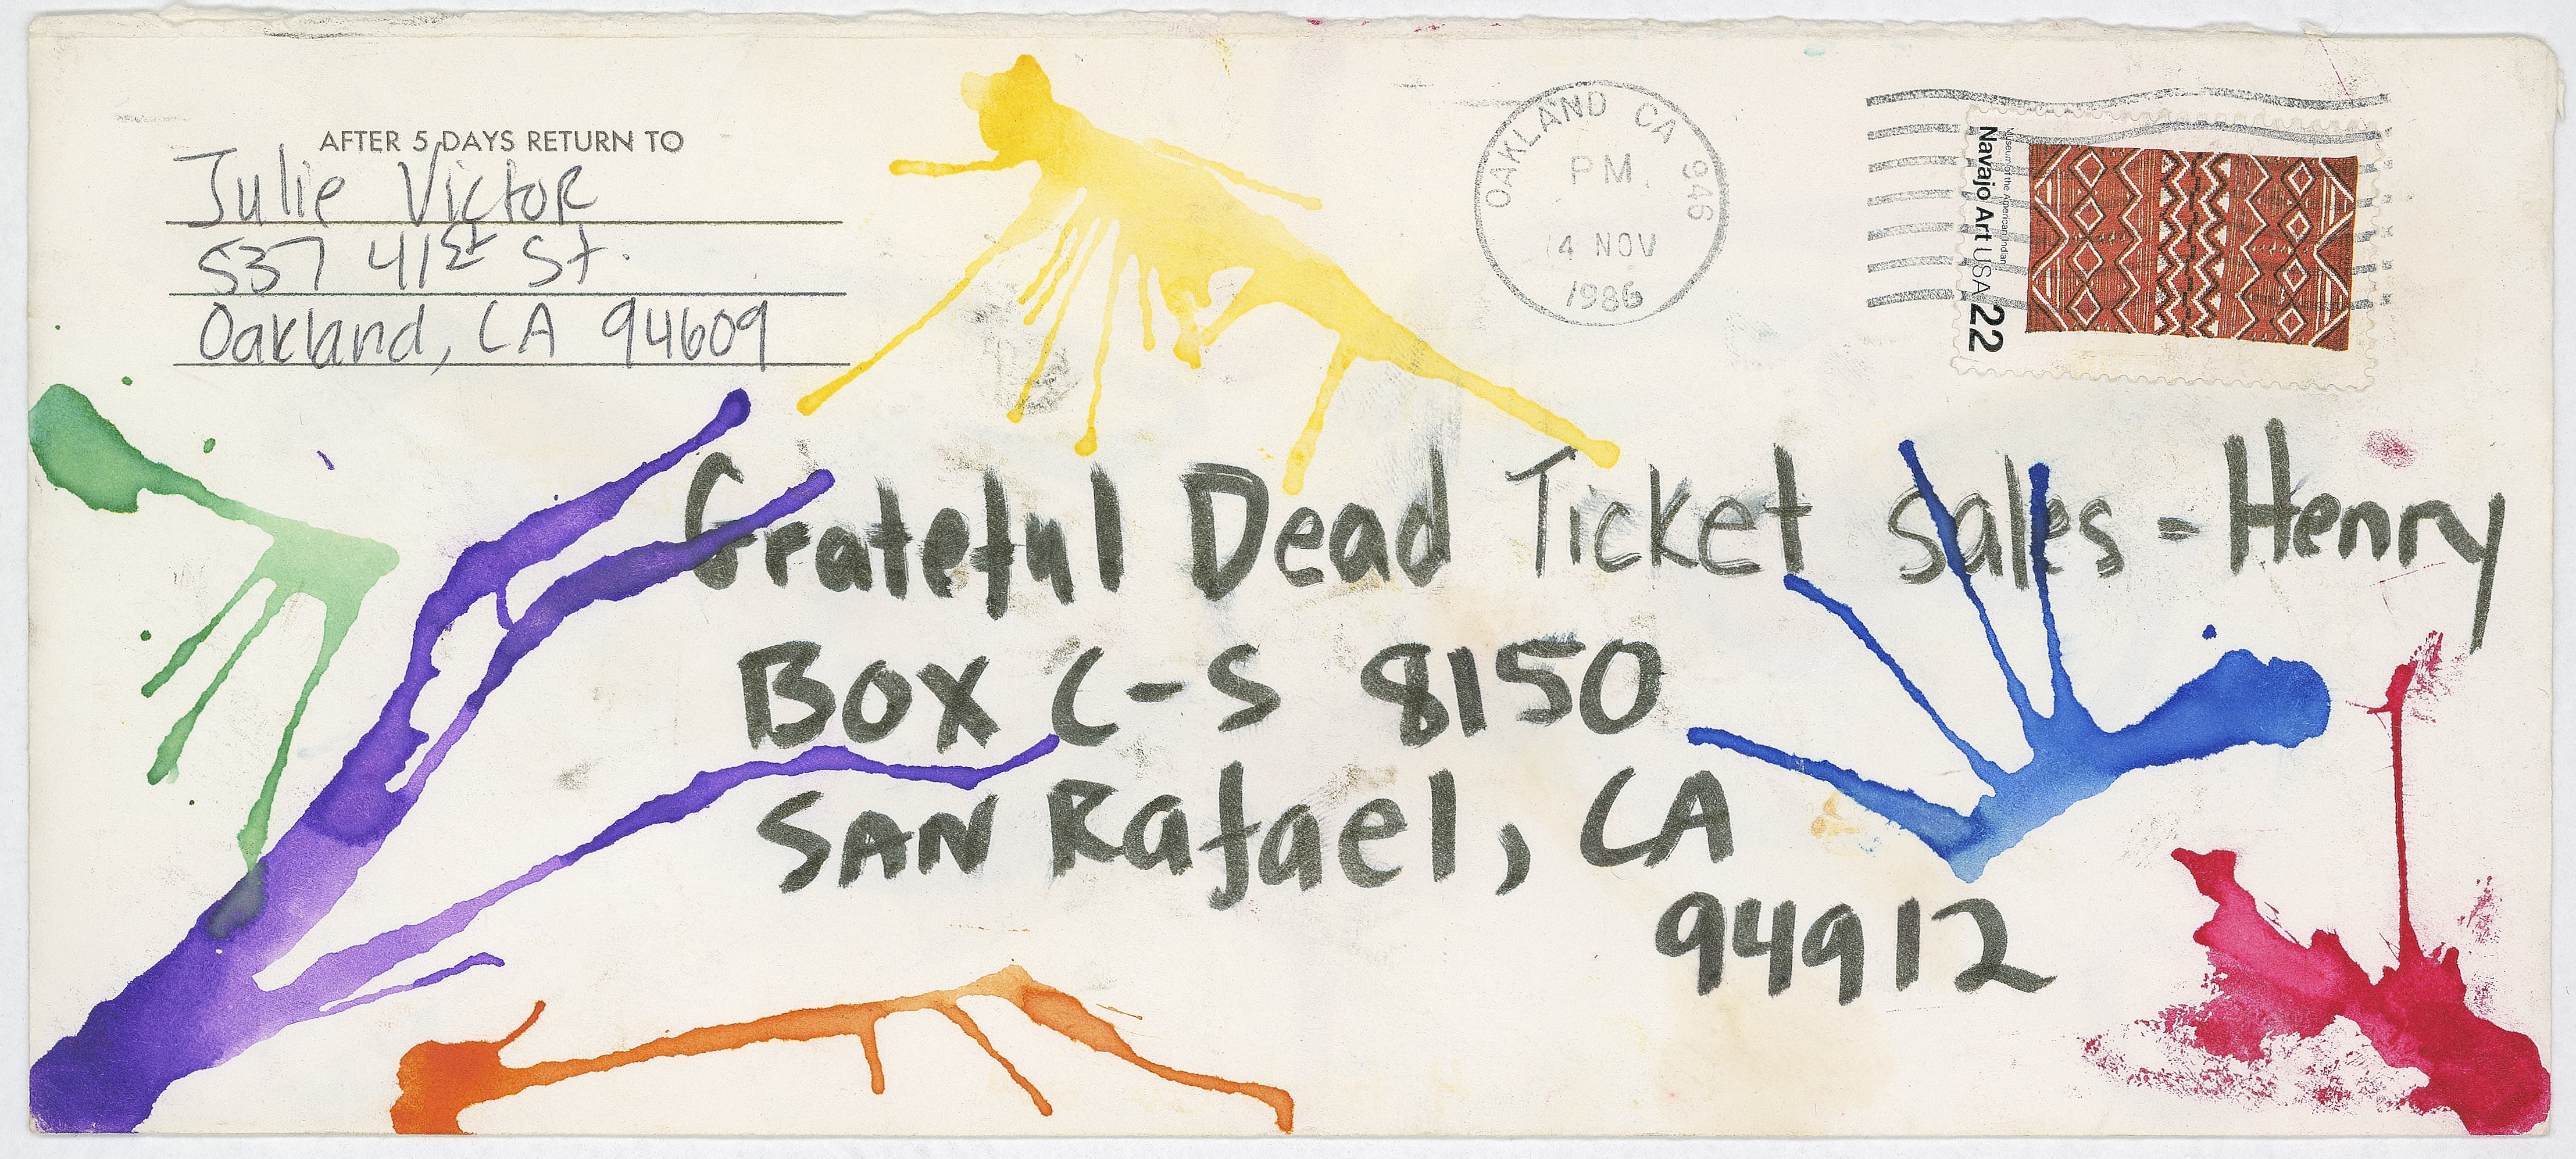 AFTER 5 DAYS RETURN TO
Julie Victor
537 41st St.
Oakland, CA 94609
OAKLAND CA 946
PM
14 NOV
1986
Museum of the American Indian
Navajo Art USA 22
Grateful Dead Ticket Sales - Henry
Box C-S 8150
SAN Rafael, CA
94912